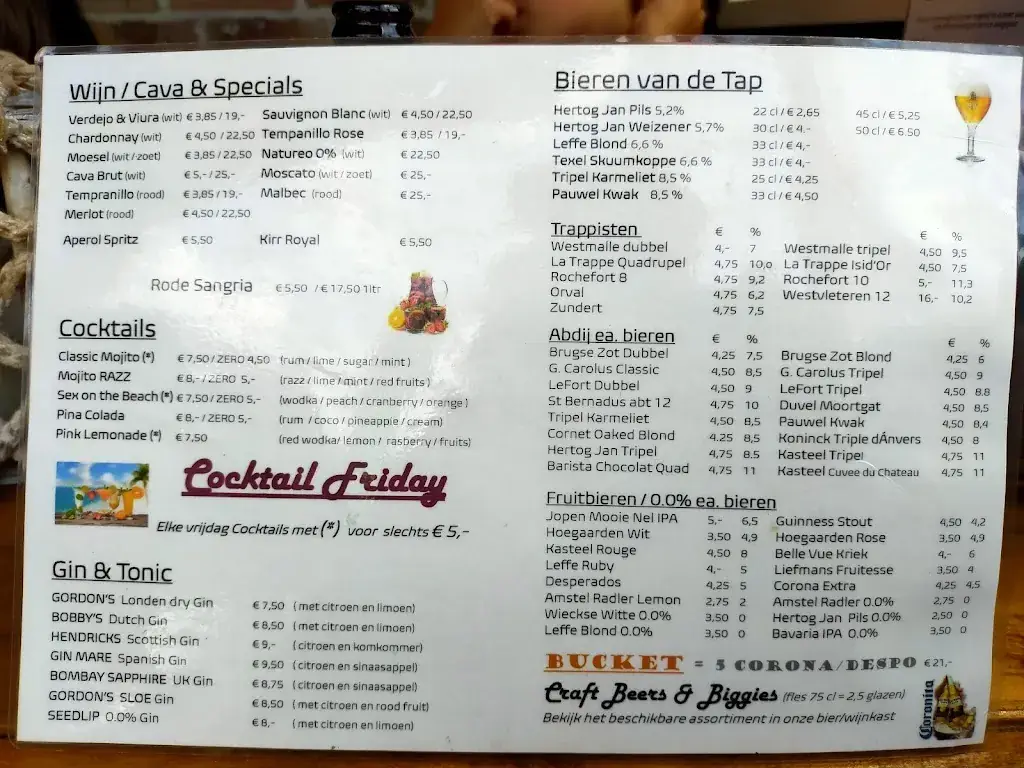 Wijn / Cava & Specials
Verdejo & Viura (wit) € 3,85 / 19,- Sauvignon Blanc (wit) € 4,50 / 22,50
Chardonnay (wit) € 4,50 / 22,50 Tempanillo Rose € 3,85 / 19,-
Moesel (wit / zoet) € 3,85 / 22,50 Natureo 0% (wit) € 22,50
Cava Brut (wit) € 5,- / 25,- Moscato (wit / zoet) € 25,-
Tempranillo (rood) € 3,85 / 19,- Malbec (rood) € 25,-
Merlot (rood) € 4,50 / 22,50
Aperol Spritz € 5,50 Kirr Royal € 5,50
Rode Sangria € 5,50 / € 17,50 1ltr
Cocktails
Classic Mojito (*) € 7,50 / ZERO 4,50 (rum / lime / sugar / mint )
Mojito RAZZ € 8,- / ZERO 5,- (razz / lime / mint / red fruits )
Sex on the Beach (*) € 7,50 / ZERO 5,- (wodka / peach / cranberry / orange )
Pina Colada € 8,- / ZERO 5,- (rum / coco / pineappie / cream)
Pink Lemonade (*) € 7,50 (red wodka/ lemon / rasberry / fruits)
Cocktail Friday
Elke vrijdag Cocktails met (*) voor slechts € 5,-
Gin & Tonic
GORDON'S Londen dry Gin € 7,50 ( met citroen en limoen)
BOBBY'S Dutch Gin € 8,50 ( met citroen en limoen)
HENDRICKS Scottish Gin € 9,- ( citroen en komkommer)
GIN MARE Spanish Gin € 9,50 ( citroen en sinaasappel)
BOMBAY SAPPHIRE UK Gin € 8,75 ( citroen en sinaasappel)
GORDON'S SLOE Gin € 8,50 ( met citroen en rood fruit)
SEEDLIP 0.0% Gin € 8,- ( met citroen en limoen)
Bieren van de Tap
Hertog Jan Pils 5,2% 22 cl / € 2,65 45 cl / € 5,25
Hertog Jan Weizener 5,7% 30 cl / € 4.- 50 cl / € 6.50
Leffe Blond 6,6 % 33 cl / € 4,-
Texel Skuumkoppe 6,6 % 33 cl / € 4,-
Tripel Karmeliet 8,5 % 25 cl / € 4,25
Pauwel Kwak 8,5 % 33 cl / € 4,50
Trappisten € % € %
Westmalle dubbel 4,- 7 Westmalle tripel 4,50 9,5
La Trappe Quadrupel 4,75 10,0 La Trappe Isid'Or 4,50 7,5
Rochefort 8 4,75 9,2 Rochefort 10 5,- 11,3
Orval 4,75 6,2 Westvleteren 12 16,- 10,2
Zundert 4,75 7,5
Abdij ea. bieren € % € %
Brugse Zot Dubbel 4,25 7,5 Brugse Zot Blond 4,25 6
G. Carolus Classic 4,50 8,5 G. Carolus Tripel 4,50 9
LeFort Dubbel 4,50 9 LeFort Tripel 4,50 8.8
St Bernadus abt 12 4,75 10 Duvel Moortgat 4,50 8,5
Tripel Karmeliet 4,50 8,5 Pauwel Kwak 4,50 8,4
Cornet Oaked Blond 4.25 8,5 Koninck Triple dÁnvers 4,50 8
Hertog Jan Tripel 4,75 8.5 Kasteel Tripel 4,75 11
Barista Chocolat Quad 4,75 11 Kasteel Cuvee du Chateau 4,75 11
Fruitbieren / 0.0% ea. bieren
Jopen Mooie Nel IPA 5,- 6,5 Guinness Stout 4,50 4,2
Hoegaarden Wit 3,50 4,9 Hoegaarden Rose 3,50 4,9
Kasteel Rouge 4,50 8 Belle Vue Kriek 4,- 6
Leffe Ruby 4,- 5 Liefmans Fruitesse 3,50 4
Desperados 4,25 5 Corona Extra 4,25 4,5
Amstel Radler Lemon 2,75 2 Amstel Radler 0.0% 2,75 0
Wieckse Witte 0.0% 3,50 0 Hertog Jan Pils 0.0% 2,50 0
Leffe Blond 0.0% 3,50 0 Bavaria IPA 0.0% 3,50 0
BUCKET = 5 CORONA/DESPO € 21,-
Craft Beers & Biggies (fles 75 cl = 2,5 glazen)
Bekijk het beschikbare assortiment in onze bier/wijnkast
Coronita